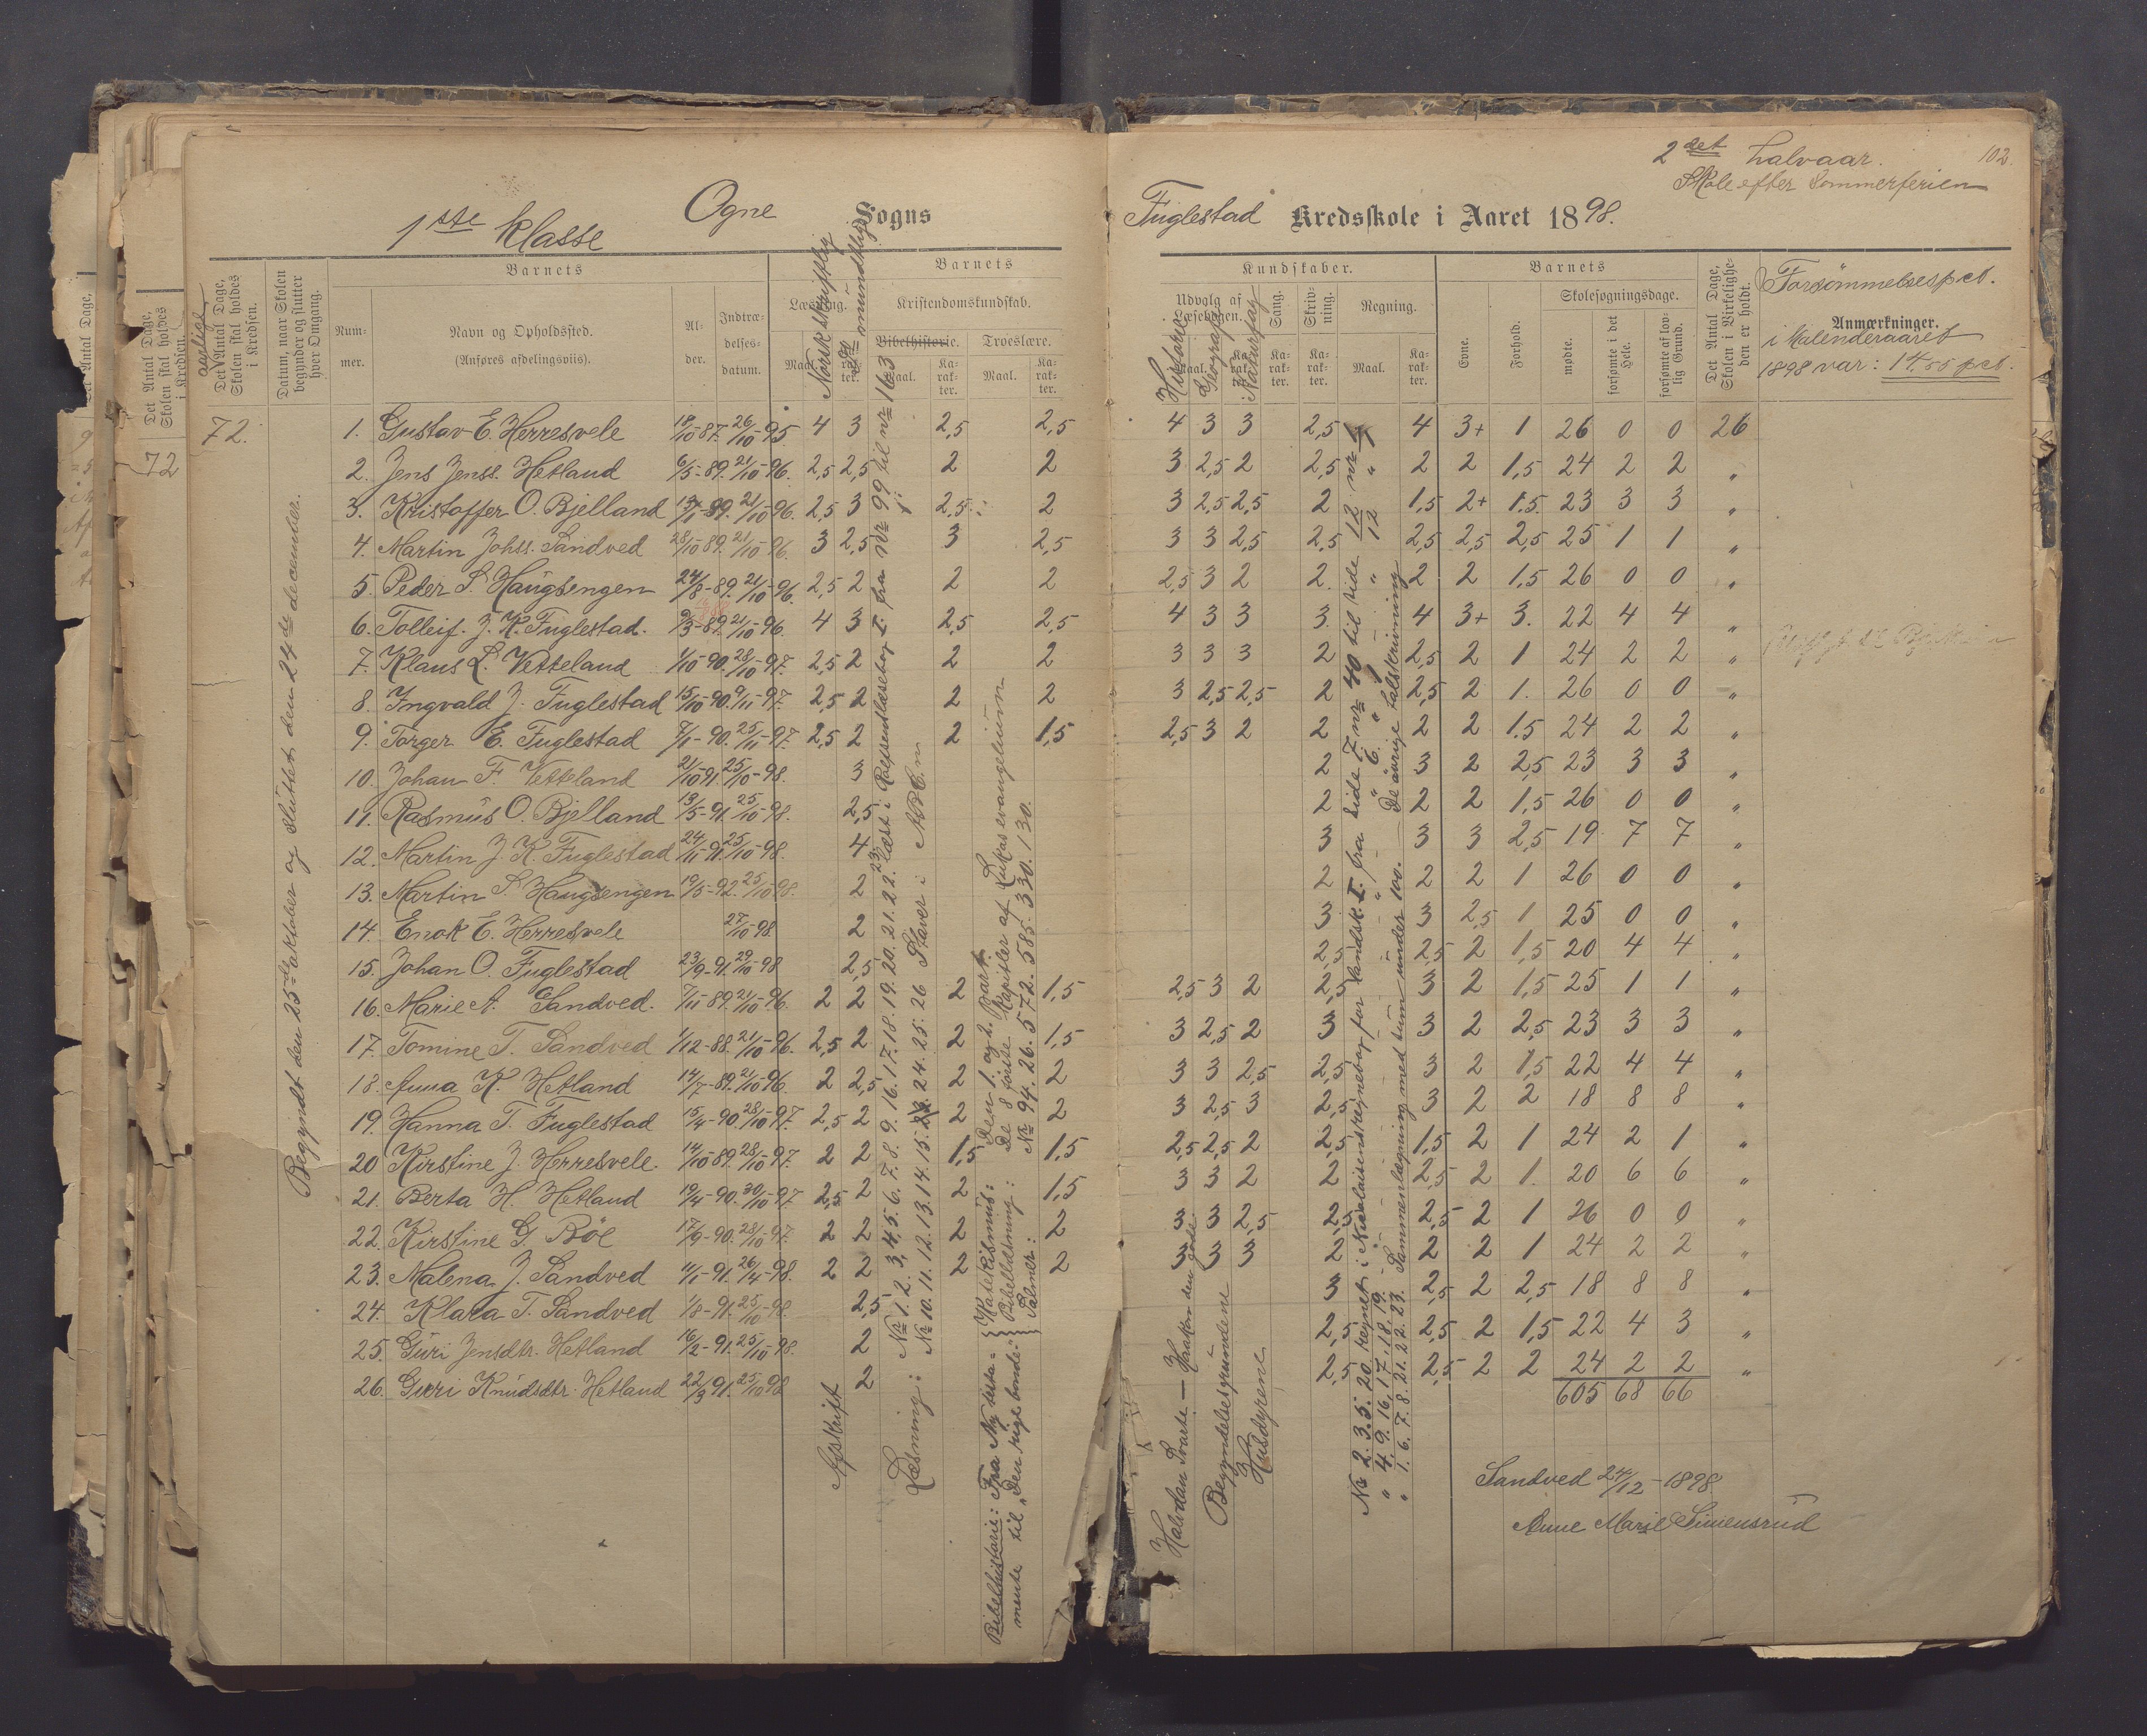 2det halvaar.
102.
Skole efter Sommerferien
1ste klasse
Ogne Sogns
Fuglestad Kredsskole i Aaret 1898.
Det Antal Dage, Skolen skal holdes i Kredsen.
72
aarlige
Det Antal Dage, Skolen skal holdes i Kredsen.
Datum, naar Skolen begynder og slutter hver Omgang.
Barnets
Nummer.
Navn og Opholdssted.
(Anføres afdelingsviis).
Alder.
Indtrædelsesdatum.
Barnets
Læsning.
Norsk skriftlig
mundtlig
Kristendomskundskab.
Bibelhistorie.
Troeslære.
Maal.
Karakter.
Maal.
Karakter.
Kundskaber.
Udvalg af Læsebogen.
Historie
Geografi
Naturfag
Sang.
Karakter.
Skrivning.
Karakter.
Regning.
Maal.
Karakter.
Barnets
Evne.
Forhold.
Skolesøgningsdage.
mødte.
forsømte i det Hele.
forsømte af lovlig Grund.
Det Antal Dage, Skolen i Virkeligheden er holdt.
Forsømmelsespct.
Anmærkninger.
i kalenderaaret
1898 var: 14.55 pct.
72.
Begyndt den 25de oktober og sluttet den 24de december.
1. Gustav E. Herresvele 18/10-87. 26/10-95 4 3 2,5 2,5 4 3 3 2,5 4 3+ 1 26 0 0 26
2. Jens Jenss. Hetland 6/5-89. 21/10-96. 2,5 2,5 2 2 3 2,5 2 2,5 2 2 1,5 24 2 2 "
3. Kristoffer O. Bjelland 13/1-89. 21/10-96. 2,5 3 2,5 2 3 2,5 2,5 2 1,5 2+ 1.5. 23 3 3 "
4. Martin Johss. Sandved 28/10 89. 21/10-96. 3 2,5 3 2,5 3 3 2,5 2,5 2,5 2,5 2,5 25 1 1 "
5. Peder S. Haugsengen 24/8-89. 21/10-96. 2,5 2 2 2 2,5 3 2 2. 2 2 1.5 26 0 0 "
6. Tolleif. J. K. Fuglestad. 9/3-89. 21/10-96. 4 3 2,5 2,5 4 3 3 3. 4 3+ 3. 22 4 4 "
7. Klaus L. Vetteland 1/10-90. 28/10-97. 2,5 2 2 2 3 3 3 2 2,5 2 1 24 2 2 "
8. Ingvald J. Fuglestad 15/10-90. 9/11-97. 2,5 2 2 2 3 2,5 2,5 2 2,5 2 1. 26 0 0 "
9. Torger E. Fuglestad 7/1-90. 25/11-97. 2,5 2 2 1,5 2,5 3 2 2 2 2 1.5 24 2 2 "
10. Johan F. Vetteland 21/10 91. 25/10-98. 3 2 3 2 2,5 23 3 3 "
11. Rasmus O. Bjelland 13/5-91. 25/10-98. 2,5 2 2 2 1,5 26 0 0 "
12. Martin J. K. Fuglestad 24/11-91. 25/10-98. 4 3 3 3 2,5 19 7 7 "
13. Martin S. Haugsengen 19/5-92. 25/10 98. 2 2 2 2 1 26 0 0 "
14. Enok E. Herresvele 27/10-98. 2 3 3 2,5 1 25 0 0 "
15. Johan O. Fuglestad 23/9-91. 29/10-98 2,5 2,5 2,5 2 1,5 20 4 4 "
16. Marie A. Sandved. 7/11-89. 21/10-96. 2 2 2 1,5 2,5 3 2 2,5 3 2 1,5 25 1 1 "
17. Tomine T. Sandved 1/12-88. 21/10-96. 2,5 2 2 1,5 3 2,5 2 3 3 2 2,5 23 3 3 "
18. Anna K. Hetland 14/7-89. 21/10-96. 2 2,5 2 2 3 3 2,5 2,5 3 2 1,5 22 4 4 "
19. Hanna T. Fuglestad 15/4-90. 28/10-97. 2,5 2 2 2 3 2,5 3 2,5 3 2 2 18 8 8 "
20 Kirstine J. Herresvele. 14/10 89. 28/10-97. 2 2 1,5 1,5 2,5 2,5 2 2,5 1,5 2 1 24 2 1 "
21. Berta H. Hetland 19/4-90. 30/10-97 2,5 2 2 1,5 3 3 2 2 2,5 2 1. 20 6 6 "
22. Kirstine G. Bøe 17/9-90. 28/10-97. 2 2 2 2 3 3 2,5 2,5 2,5 2 1 26 0 0 "
23. Malena J. Sandved 11/1-91. 26/4-98. 2 2 2 2 3 3 3 2 2 2 1 24 2 2 "
24. Klara T. Sandved 1/8-91. 25/10-98. 2,5 3 2,5 2 2,5 18 8 8 "
25. Guri Jensdtr. Hetland 16/2-91. 25/10-98. 2 2,5 2,5 2 1,5 22 4 3 "
26. Guri Knudsdtr. Hetland 22/3 91. 25/10 98 2 2,5 2,5 2 2 24 2 2 "
605 68 66
Afskrift
Læsning: No 1. 2. 3. 4. 5. 6. 7. 8. 9. 16. 17. 18. 19. 20. 21. 22. 23 læst i Rolfsens læsebog I. fra No 99 til no 163
No 10. 11. 12. 13. 14. 15. 24. 25. 26 Staver i ABC.n
Bibelhistorie: Fra Ny testamente til "Den rige bonde."
Katekismus: Den 1. og 2. Part.
Bibellæsning: De 8 første kapitler af Lukas evangelium
Salmer: No 94. 26. 572. 585. 330. 130.
Halvdan Svarte — Haakon den gode
Begyndelsesgrundene
Husdyrene
No 2. 3. 5. 20 regnet i Nicolaisens regnebog for landsk. I. fra side 7 no 40 til side 12 no 4
" 4. 9. 16. 17. 18. 19.
" 1. 6. 7. 8. 21. 22. 23. Sammenlægning med tum under 100. — De øvrige talskrivning
Sandved 24/12-1898
Anne Marie Simensrud